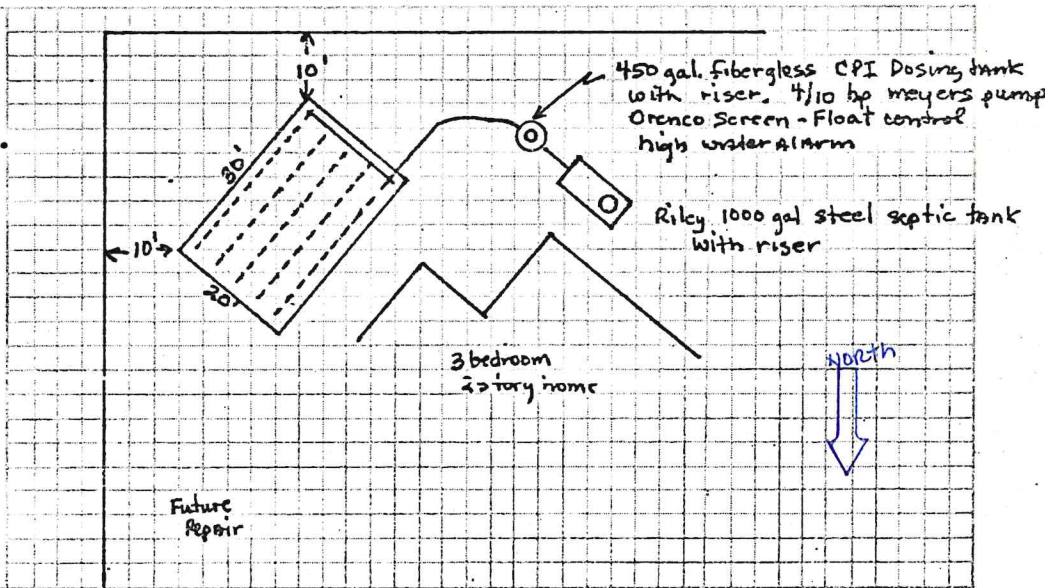 10'
450 gal. fibergless CPI Dosing tank
with riser. 4/10 hp meyers pump
Orenco Screen - Float control
high water Alarm
30'
10'
20'
Riley 1000 gal steel septic tank
with riser
3 bedroom
2 story home
NORTH
Future
Repair